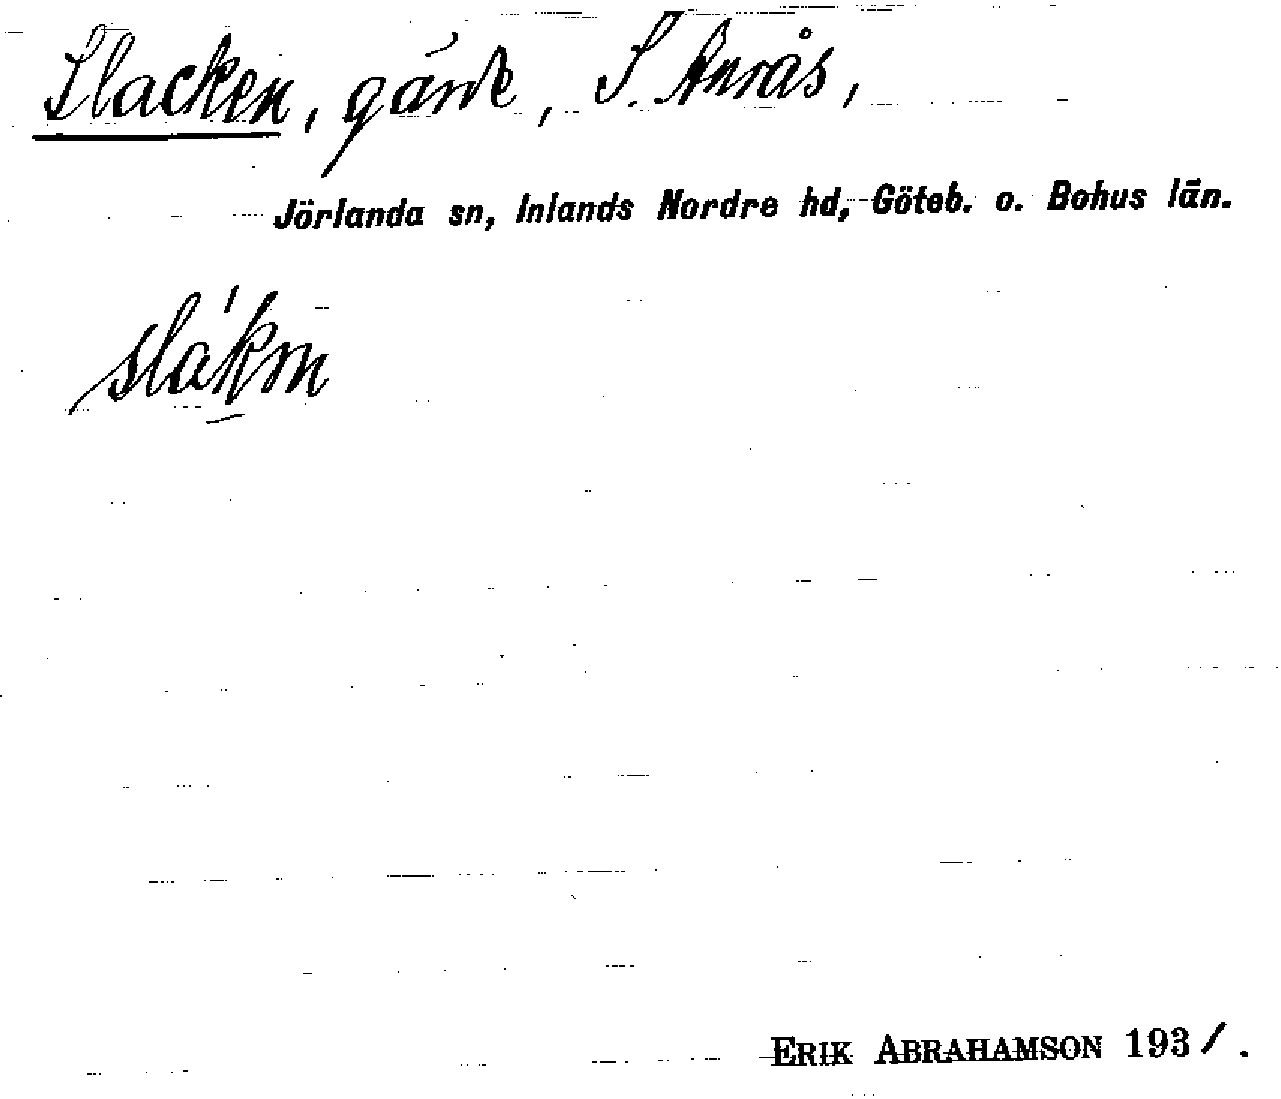 Slacken, gärde, S. Anrås,
Jörlanda sn, Inlands Nordre hd, Göteb. o. Bohus län.
slákm
ERIK ABRAHAMSON 1931.